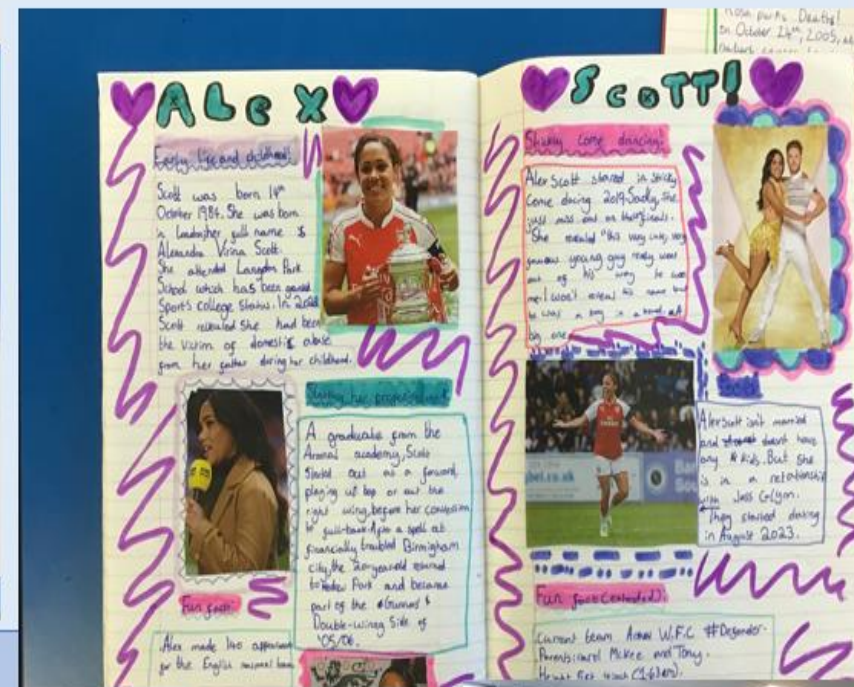 ALeX
Early life and childhood!
Scott was born 14th
October 1984. She was born
in
full name is
Alexandra Virina Scott.
She attended Langdon Park
School which has been gained
Sports college status. In
Scott revealed she had been
the victim of domestic abuse
from her father during her childhood.
her
A graduate from the
Arsenal academy, Scott
started out as a forward,
playing up top or out the
right wing, before her conversion
to full-back. After a spell at
financially troubled Birmingham
city, the 20-year old
to Park and became
part of the
Double-wining Side of
'05/06.
Fun fact:
Alex made 140
for the English national team
ScoTT!
Strictly come dancing!
Alex Scott starred in
Come dacing 2019. Sadly, she
just miss out on
She revealed "this very cute, very
famous young guy really went
out of his way to woo
me. I won't reveal his name but
he was a boy in a band. A
big one
Alex Scott isn't married
and doesn't have
any kids. But she
is in a relationship
with Jess Glynn.
They started dating
in August 2023.
Fun fact
Current team W.F.C # Defender.
Parents: carol McKee and Tony.
Height 5ft
Rosa parks Deaths!
on October 24th, 2005,